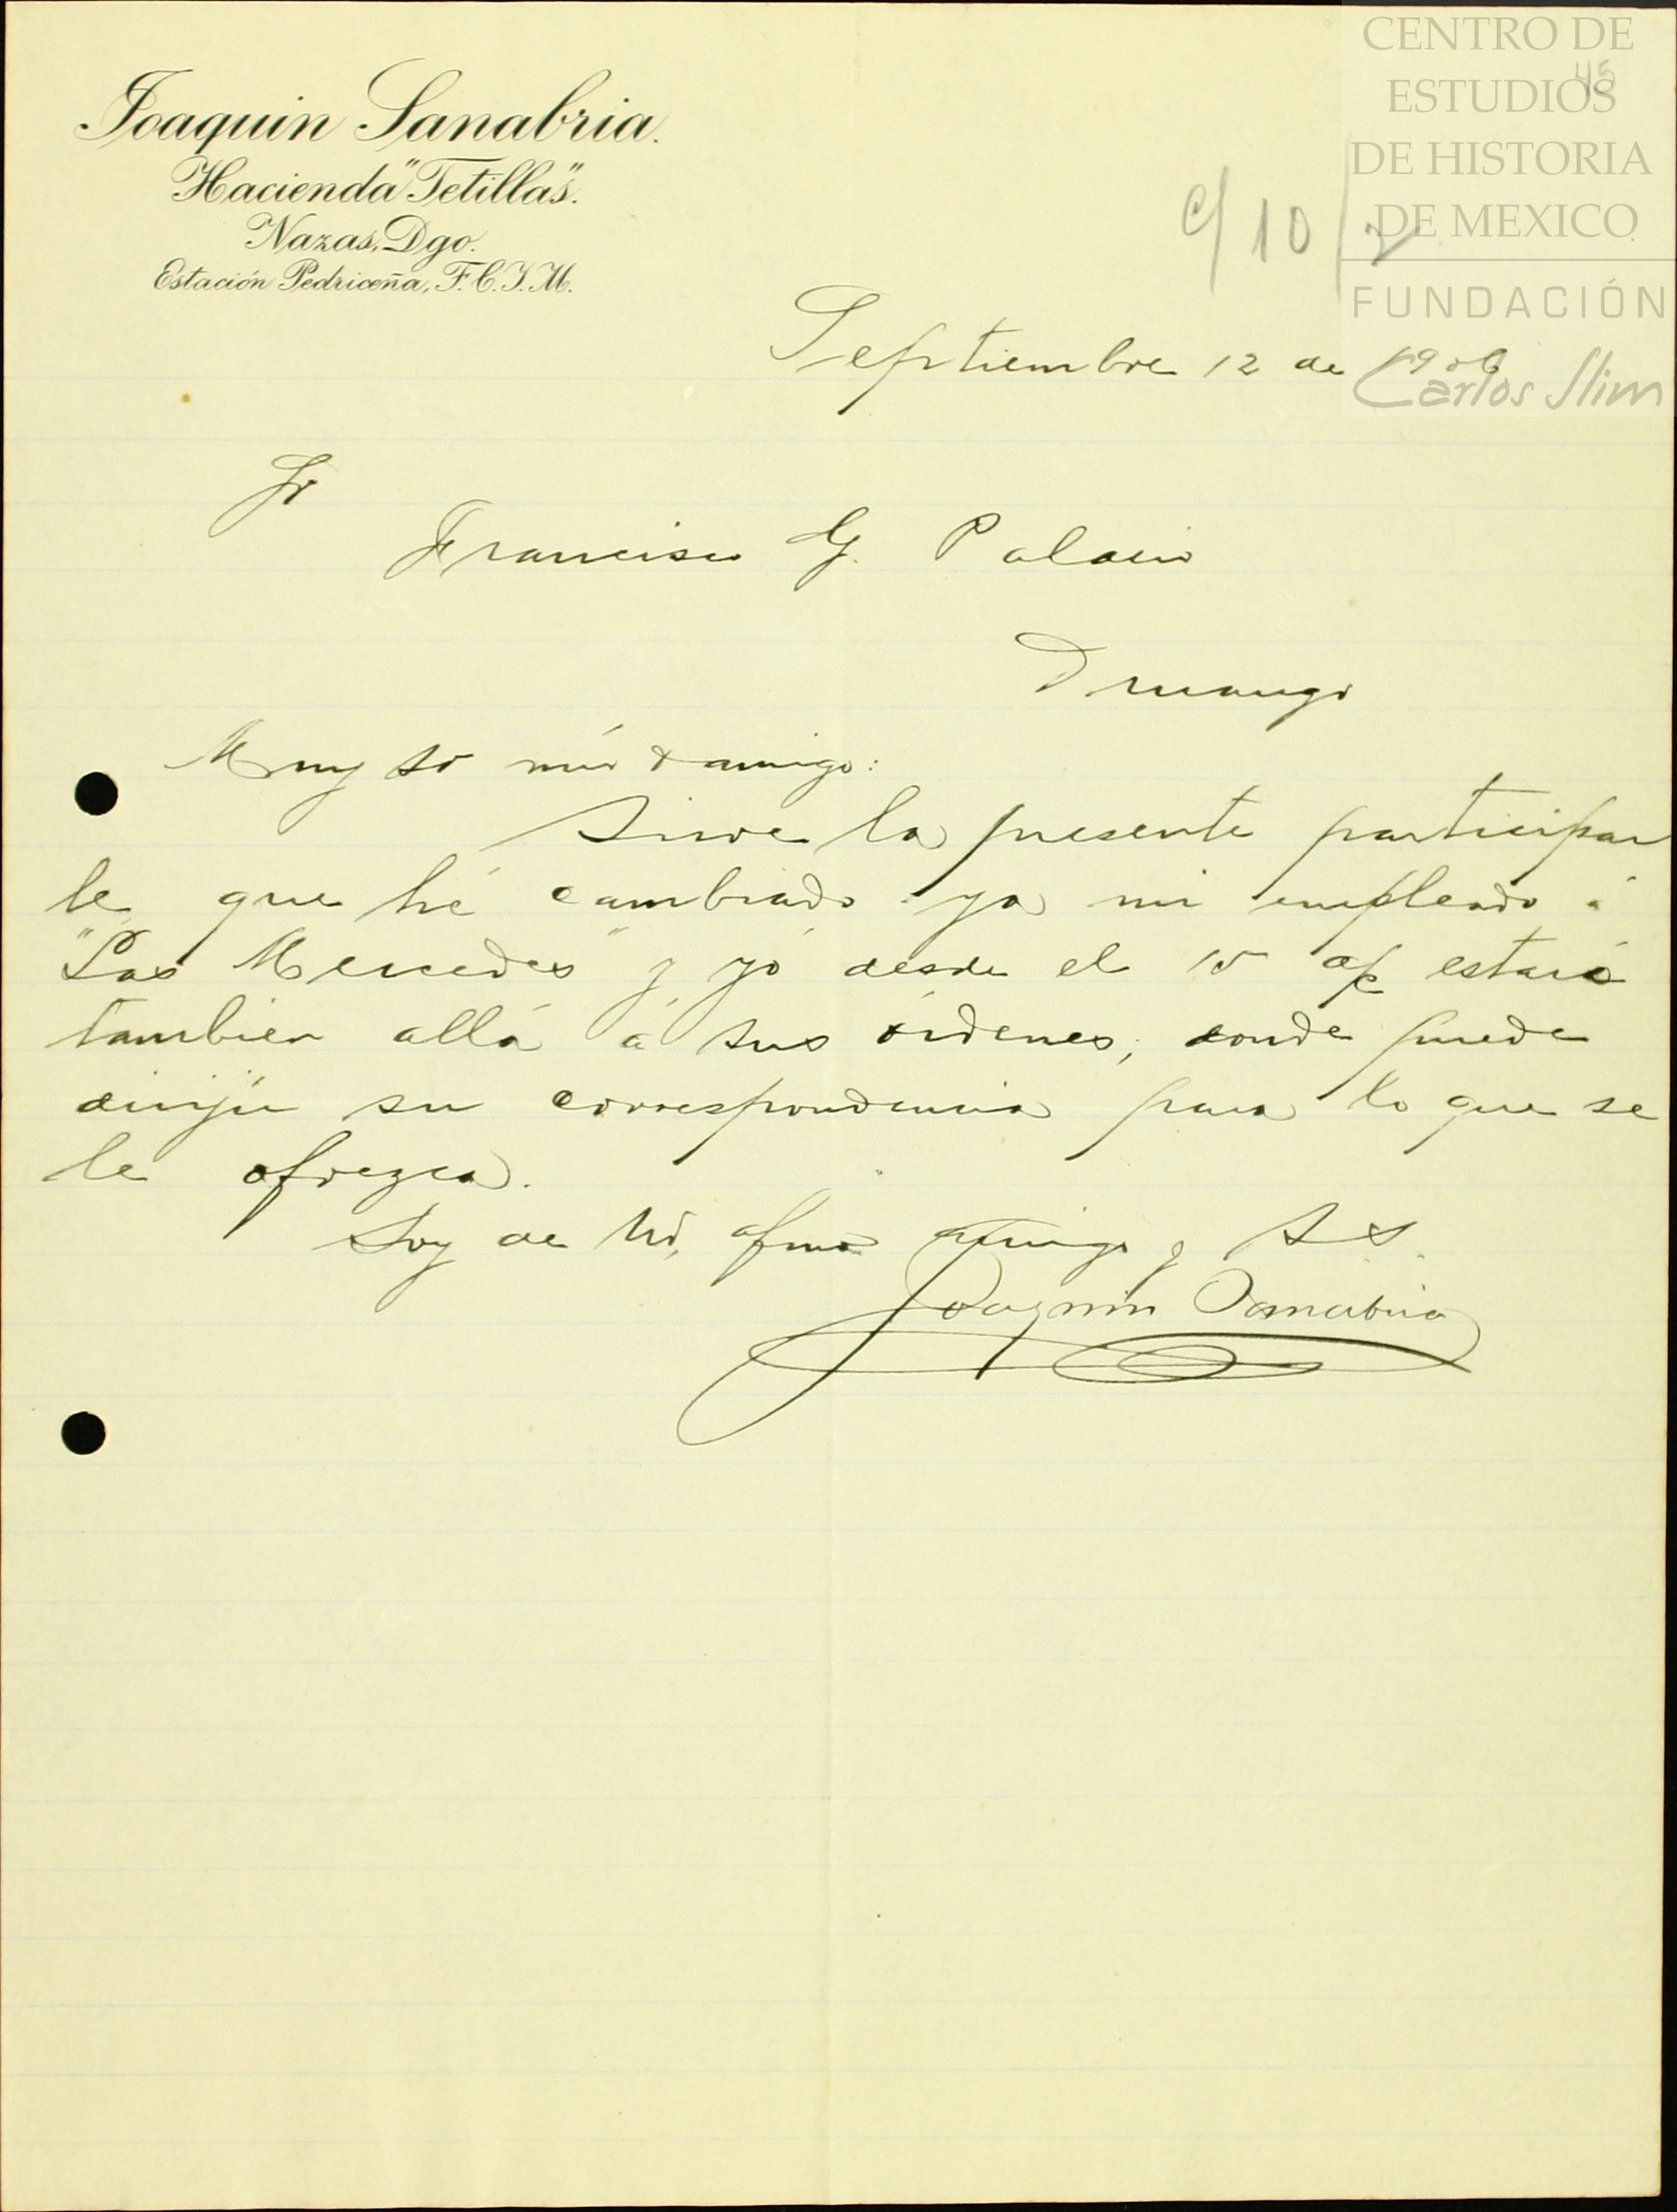 CENTRO DE
ESTUDIOS
DE HISTORIA
DE MEXICO
FUNDACIÓN
Carlos Slim
45
Joaquin Sanabria.
Hacienda "Tetillas".
Nazas, Dgo.
Estación Pedriceña, F.C.I.M.
c/ 10/2
Septiembre 12 de 1906
Sr
Francisco G. Palacio
Durango
Muy Sr mio & amigo:
Sirve la presente participar
le que hé cambiado ya mi empleado á
"Las Mercedes" y yó desde el 15 estaré
tambien allá á sus órdenes, donde puede
dirijir su correspondencia para lo que se
le ofrezca.
Soy de Ud, afmo amigo y S S.
Joaquin Sanabria